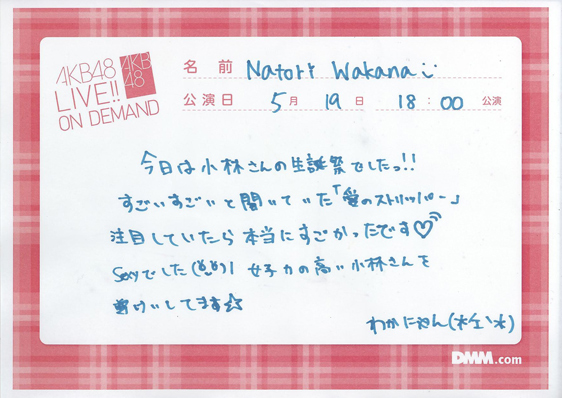 AKB48
LIVE!!
ON DEMAND
AKB
48
名前 Natori Wakana
公演日 5月 19日 18:00 公演
今日は小林さんの生誕祭でしたっ!!
すごいすごいと聞いていた「愛のストリッパー」
注目していたら本当にすごかったです♡
Sexyでした(ºωº)! 女子力の高い小林さんを
してます☆
わかにゃん(
DMM.com